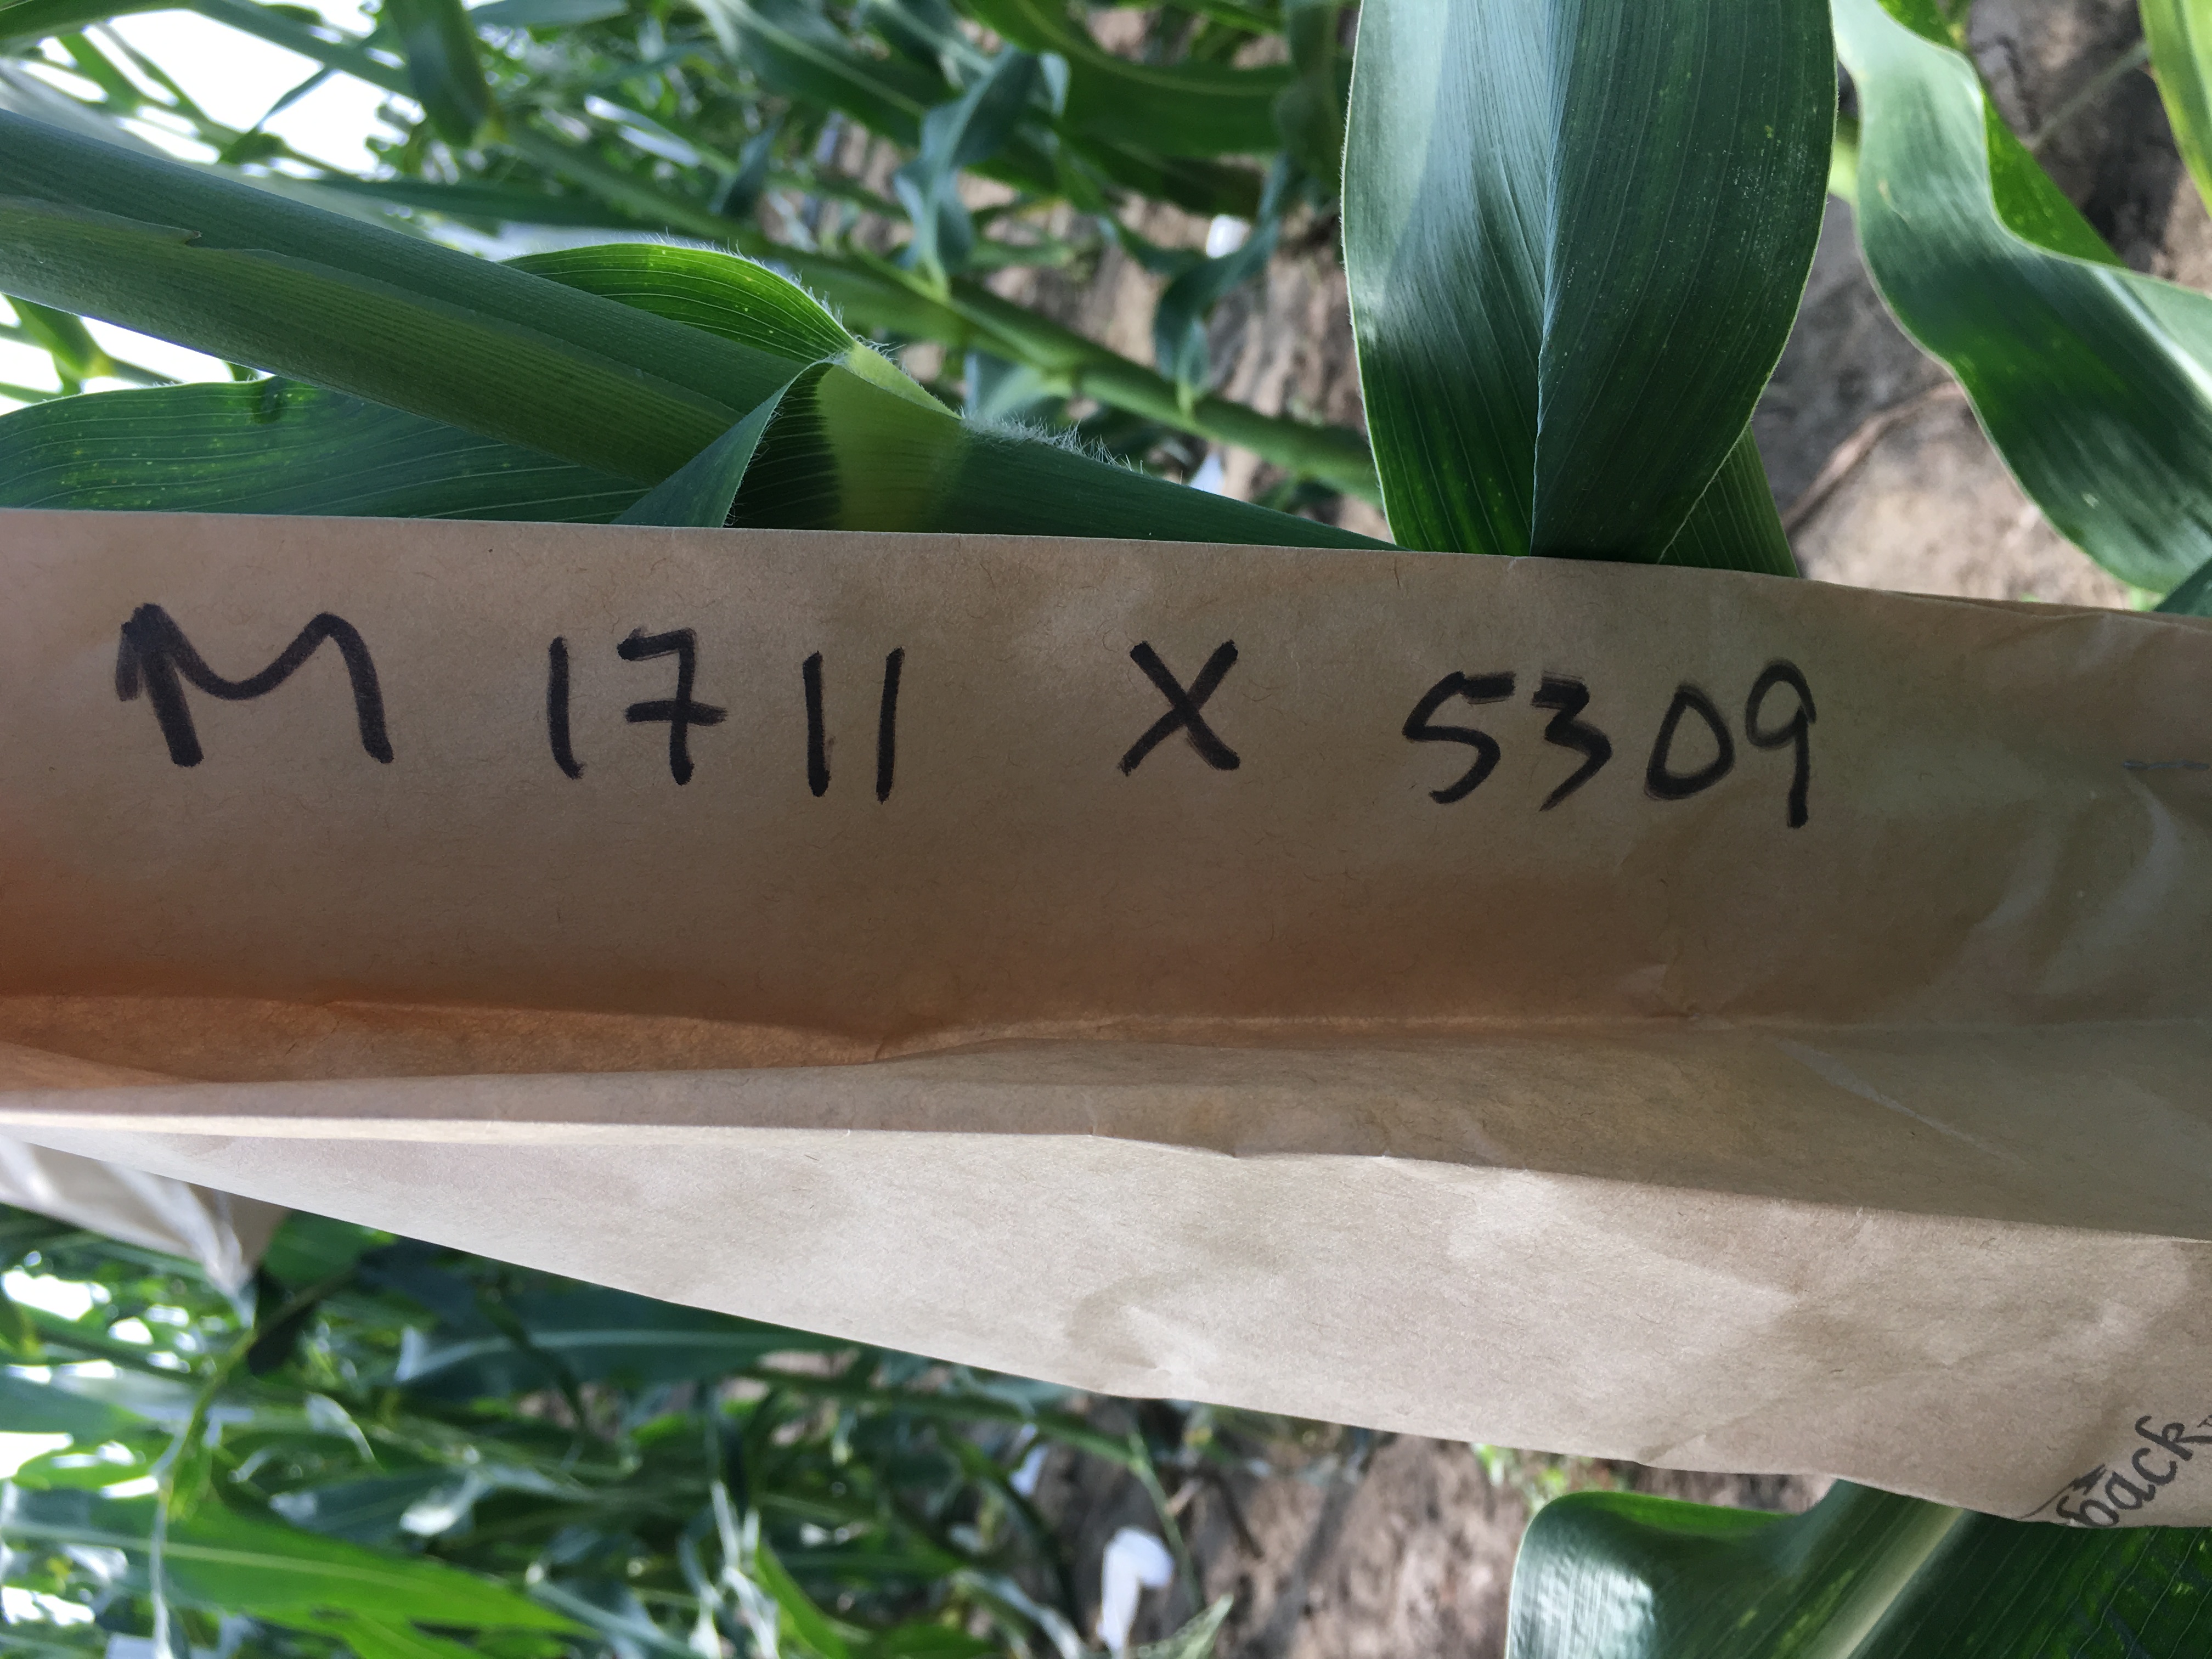 M 1711 X 5309
back